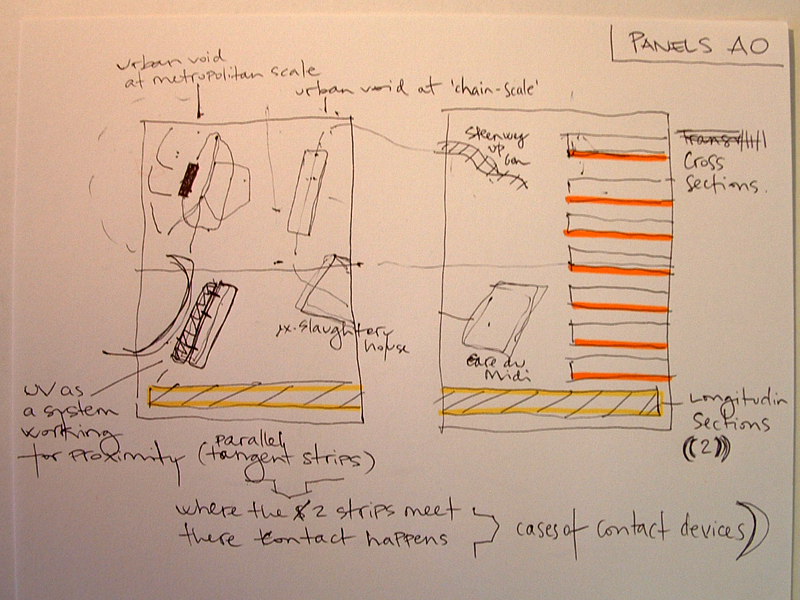 PANELS A0
urban void
at metropolitan scale
urban void at 'chain-scale'
up
Cross
sections.
ex. slaughtery
house
Gare du
Midi
UV as
a system
working
for proximity
parallel
(tangent strips)
Longitudin
Sections
((2))
where the 2 strips meet
there contact happens
cases of contact devices)